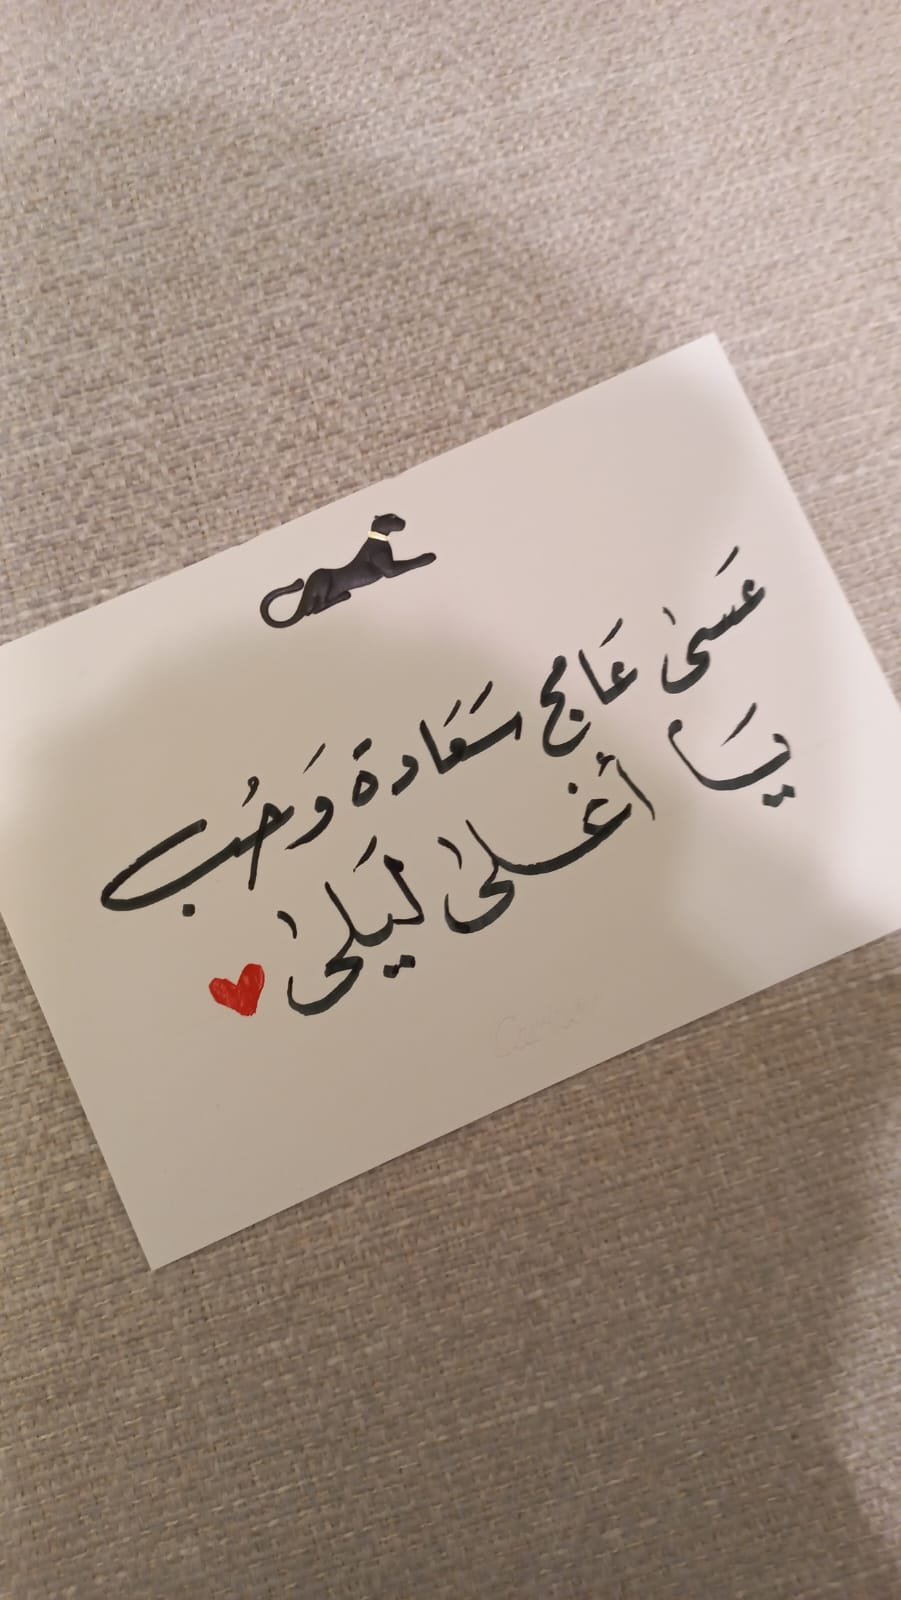 عَسىٰ عَامج سَعَادة وَحُب
يَا أغلىٰ ليَلىٰ